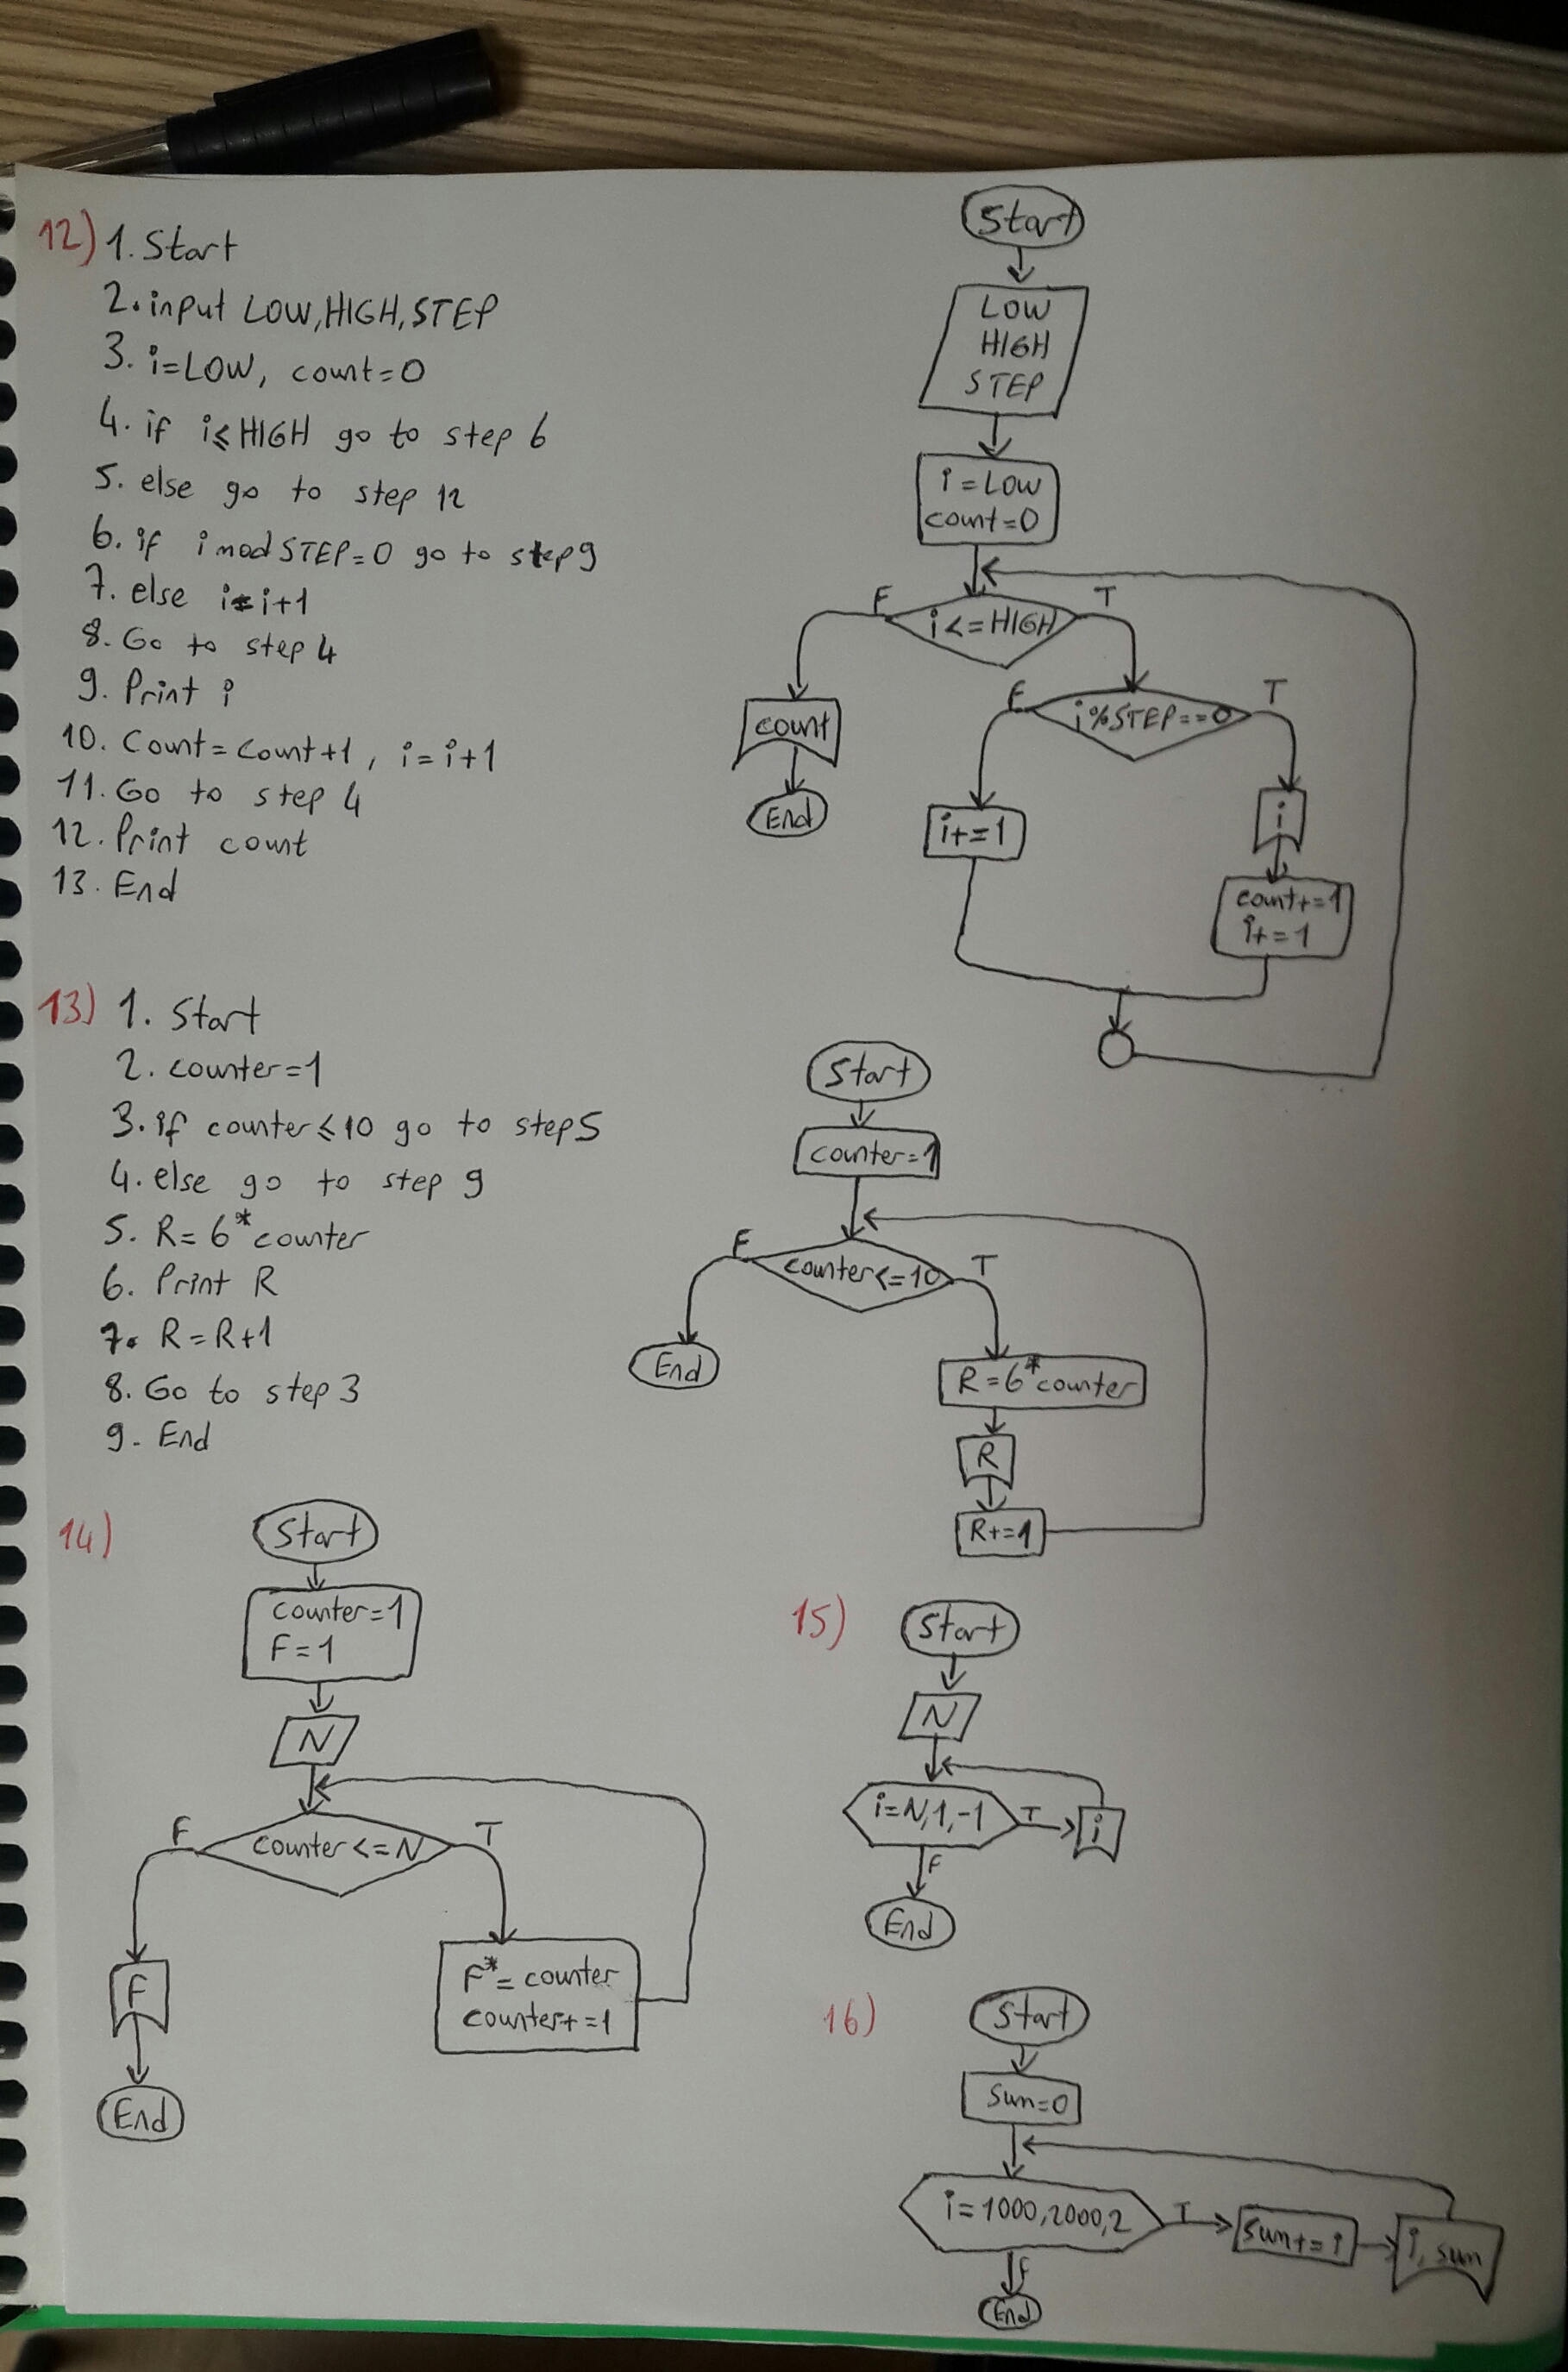 12) 1. Start
2. input LOW,HIGH,STEP
3. i=LOW, count=0
4. if i≤HIGH go to step 6
5. else go to step 12
6. if i mod STEP=0 go to step 9
7. else i=i+1
8. Go to step 4
9. Print i
10. Count=count+1, i=i+1
11. Go to step 4
12. Print count
13. End
Start
LOW
HIGH
STEP
i=LOW
count=0
F i<=HIGH T
count
End
F i%STEP==0 T
i+=1
i
count+=1
i+=1
13) 1. Start
2. counter=1
3. if counter≤10 go to step 5
4. else go to step 9
5. R=6*counter
6. Print R
7. R=R+1
8. Go to step 3
9. End
Start
counter=1
F counter<=10 T
End
R=6*counter
R
R+=1
14) Start
counter=1
F=1
N
F counter<=N T
F
End
F*=counter
counter+=1
15) Start
N
i=N,1,-1 T i
F
End
16) Start
sum=0
i=1000,2000,2 T sum+=i i, sum
F
End